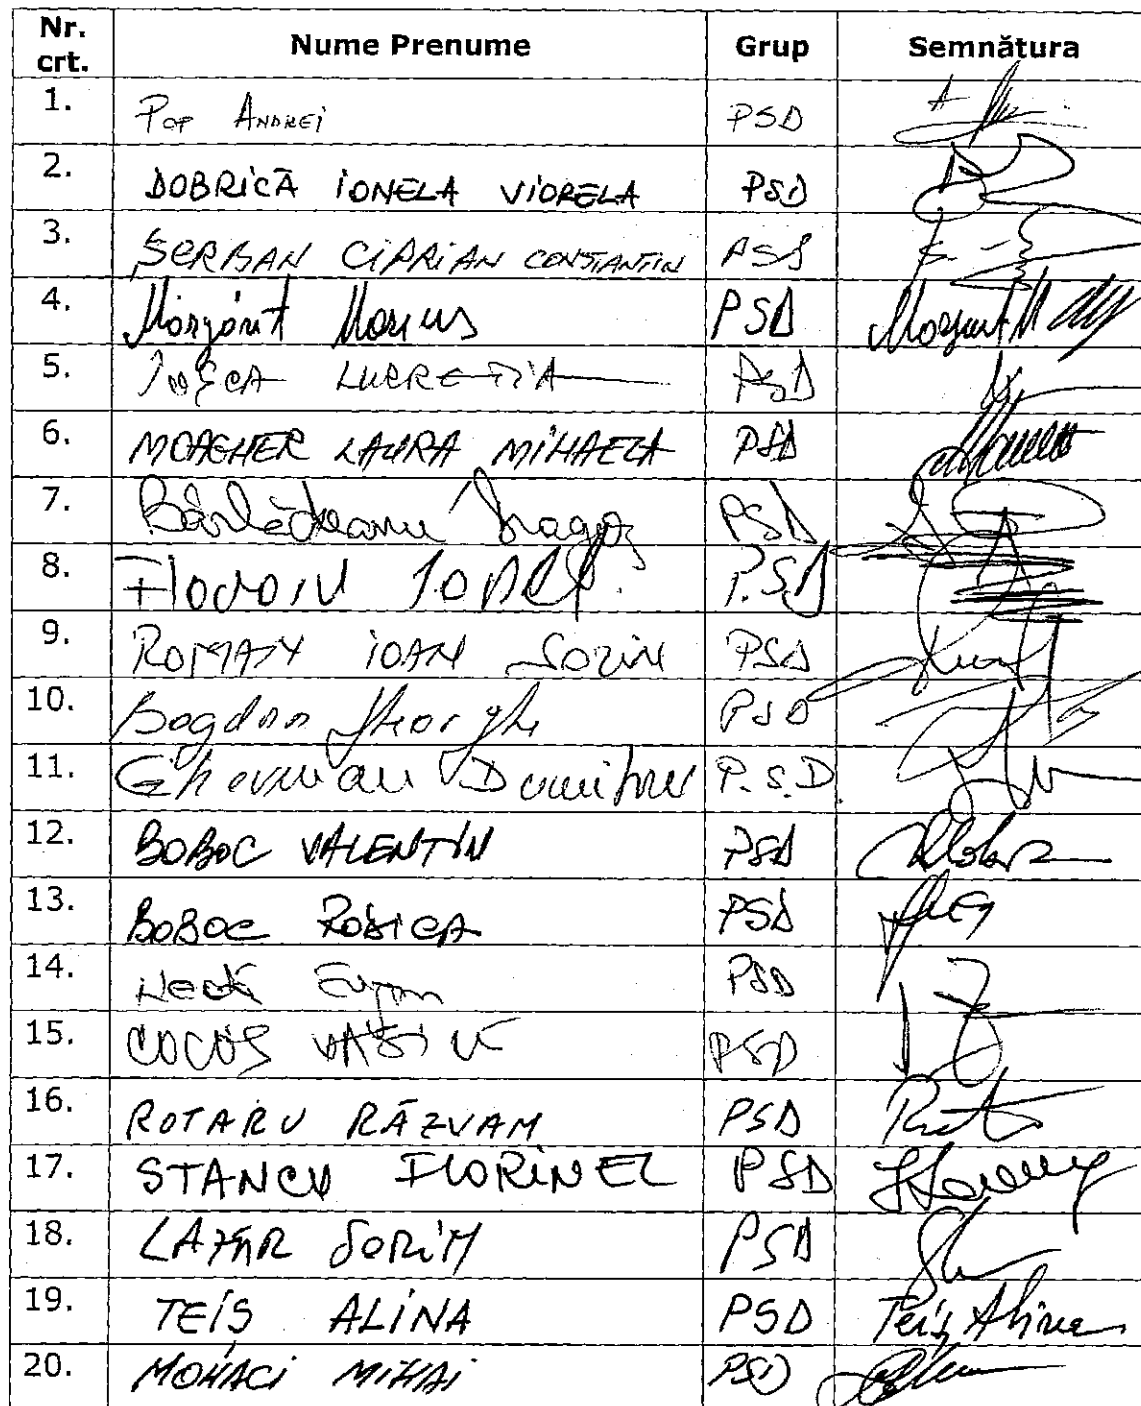 Nr. crt. Nume Prenume Grup Semnătura
1. Pop Andrei PSD
2. DOBRICĂ IONELA VIORELA PSD
3. ȘERBAN CIPRIAN CONSTANTIN PSD
4. Mărgărit Marius PSD Margarit M
5. LUCREȚIA PSD
6. MOAGHER LAURA MIHAELA PSD
7. Bârlădeanu Dragoș PSD
8. Floroiu Ionel P.S.D
9. ROMAN IOAN Sorin PSD
10. Bogdan Gheorghe PSD
11. Gherman Dumitru P.S.D
12. BOBOC VALENTIN PSD
13. BOBOC RODICA PSD
14. PSD
15. COCOȘ VASILE PSD
16. ROTARU RĂZVAN PSD
17. STANCU FLORINEL PSD
18. LAZĂR SORIN PSD
19. TEIȘ ALINA PSD Teiș Alina
20. MOHACI MIHAI PSD